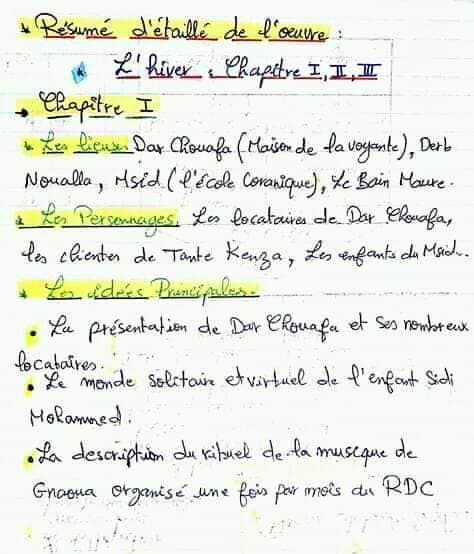 * Résumé d'étaillé de l'œuvre :
* L'hiver : Chapitre I, II, III
→ Chapitre I
* Les lieux. Dar Chouafa (Maison de la voyante), Derb
Noualla, Msid (l'école Coranique), Le Bain Maure.
* Les Personnages. Les locataires de Dar Chouafa,
les clientes de Tante Kenza, Les enfants du Msid...
* Les idées Principales.
• La présentation de Dar Chouafa et ses nombreux
locataires.
• Le monde solitaire et virtuel de l'enfant Sidi
Mohammed.
• La description du rituel de la musique de
Gnaoua organisé une fois par mois au RDC